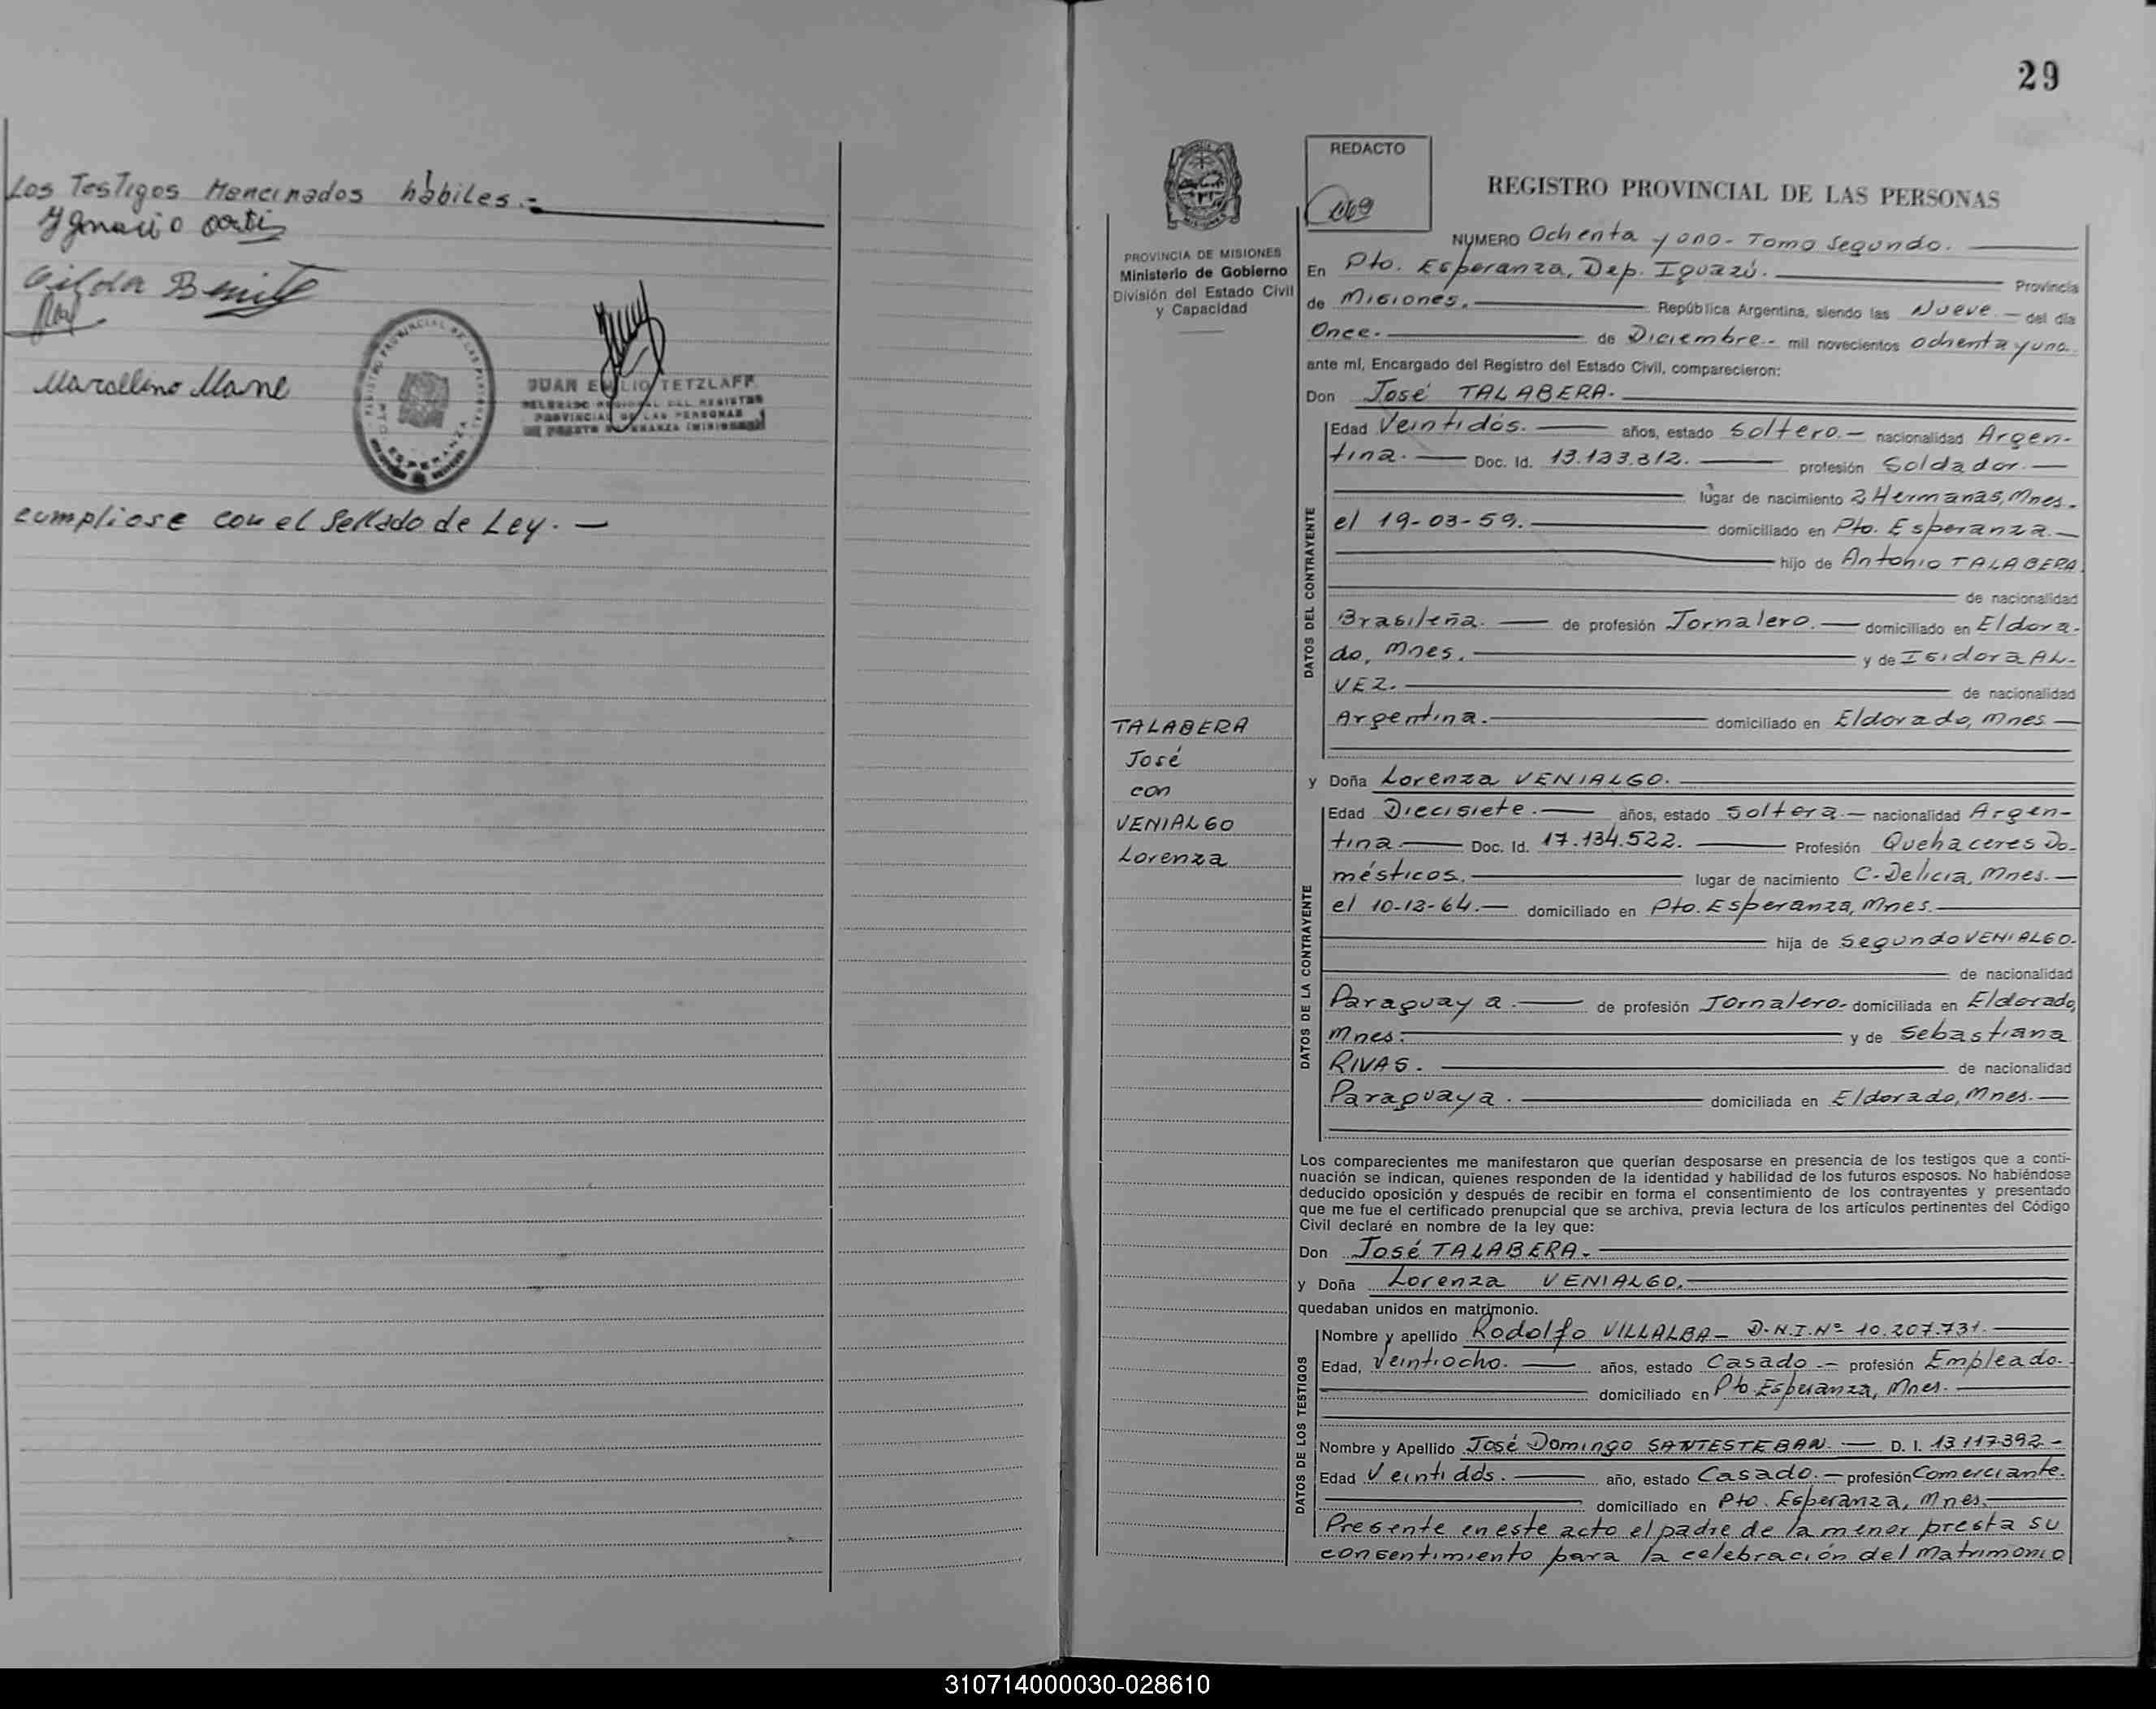 Los Testigos Mencinados hábiles.-
Ygnacio
Gilda Benit
Marcelino
JUAN EMILIO TETZLAFF
PROVINCIAL DE LAS PERSONAS
ESPERANZA
cumpliose con el Sellado de Ley.-
29
REDACTO
REGISTRO PROVINCIAL DE LAS PERSONAS
PROVINCIA DE MISIONES
Ministerio de Gobierno
División del Estado Civil
y Capacidad
NUMERO Ochenta y uno- Tomo Segundo.
En Pto. Esperanza, Dep. Iguazú. Provincia
de Misiones. República Argentina, siendo las Nueve.- del día
Once.- de Diciembre.- mil novecientos ochenta y uno.
ante mí, Encargado del Registro del Estado Civil, comparecieron:
Don José TALABERA.-
DATOS DEL CONTRAYENTE
Edad Veintidós. años, estado Soltero.- nacionalidad Argen-
tina. Doc. Id. 13.123.312. profesión Soldador.
lugar de nacimiento 2 Hermanas, Mnes.
el 19-03-59. domiciliado en Pto. Esperanza.-
hijo de Antonio TALABERA.
de nacionalidad
Brasileña. de profesión Jornalero.- domiciliado en Eldora-
do, Mnes. y de Isidora AL-
VEZ. de nacionalidad
Argentina. domiciliado en Eldorado, Mnes
TALABERA
José
con
VENIALGO
Lorenza
y Doña Lorenza VENIALGO.
DATOS DE LA CONTRAYENTE
Edad Diecisiete. años, estado Soltera.- nacionalidad Argen-
tina. Doc. Id. 17.134.522. Profesión Quehaceres Do-
mésticos. lugar de nacimiento C. Delicia, Mnes.
el 10-12-64.- domiciliado en Pto. Esperanza, Mnes.
hija de Segundo VENIALGO.
de nacionalidad
Paraguaya. de profesión Jornalero- domiciliada en Eldorado,
Mnes. y de Sebastiana
RIVAS. de nacionalidad
Paraguaya. domiciliada en Eldorado, Mnes.
Los comparecientes me manifestaron que querían desposarse en presencia de los testigos que a conti-
nuación se indican, quienes responden de la identidad y habilidad de los futuros esposos. No habiéndose
deducido oposición y después de recibir en forma el consentimiento de los contrayentes y presentado
que me fue el certificado prenupcial que se archiva, previa lectura de los artículos pertinentes del Código
Civil declaré en nombre de la ley que:
Don José TALABERA.-
y Doña Lorenza VENIALGO.
quedaban unidos en matrimonio.
DATOS DE LOS TESTIGOS
Nombre y apellido Rodolfo VILLALBA- D.N.I.Nº 10.207.731.
Edad, Veintiocho. años, estado Casado.- profesión Empleado.
domiciliado en Pto. Esperanza, Mnes.
Nombre y Apellido José Domingo SANTESTEBAN. D. I. 13.117.392.-
Edad Veintidós. año, estado Casado.- profesión Comerciante.
domiciliado en Pto. Esperanza, Mnes.
Presente en este acto el padre de la menor presta su
consentimiento para la celebración del Matrimonio
310714000030-028610